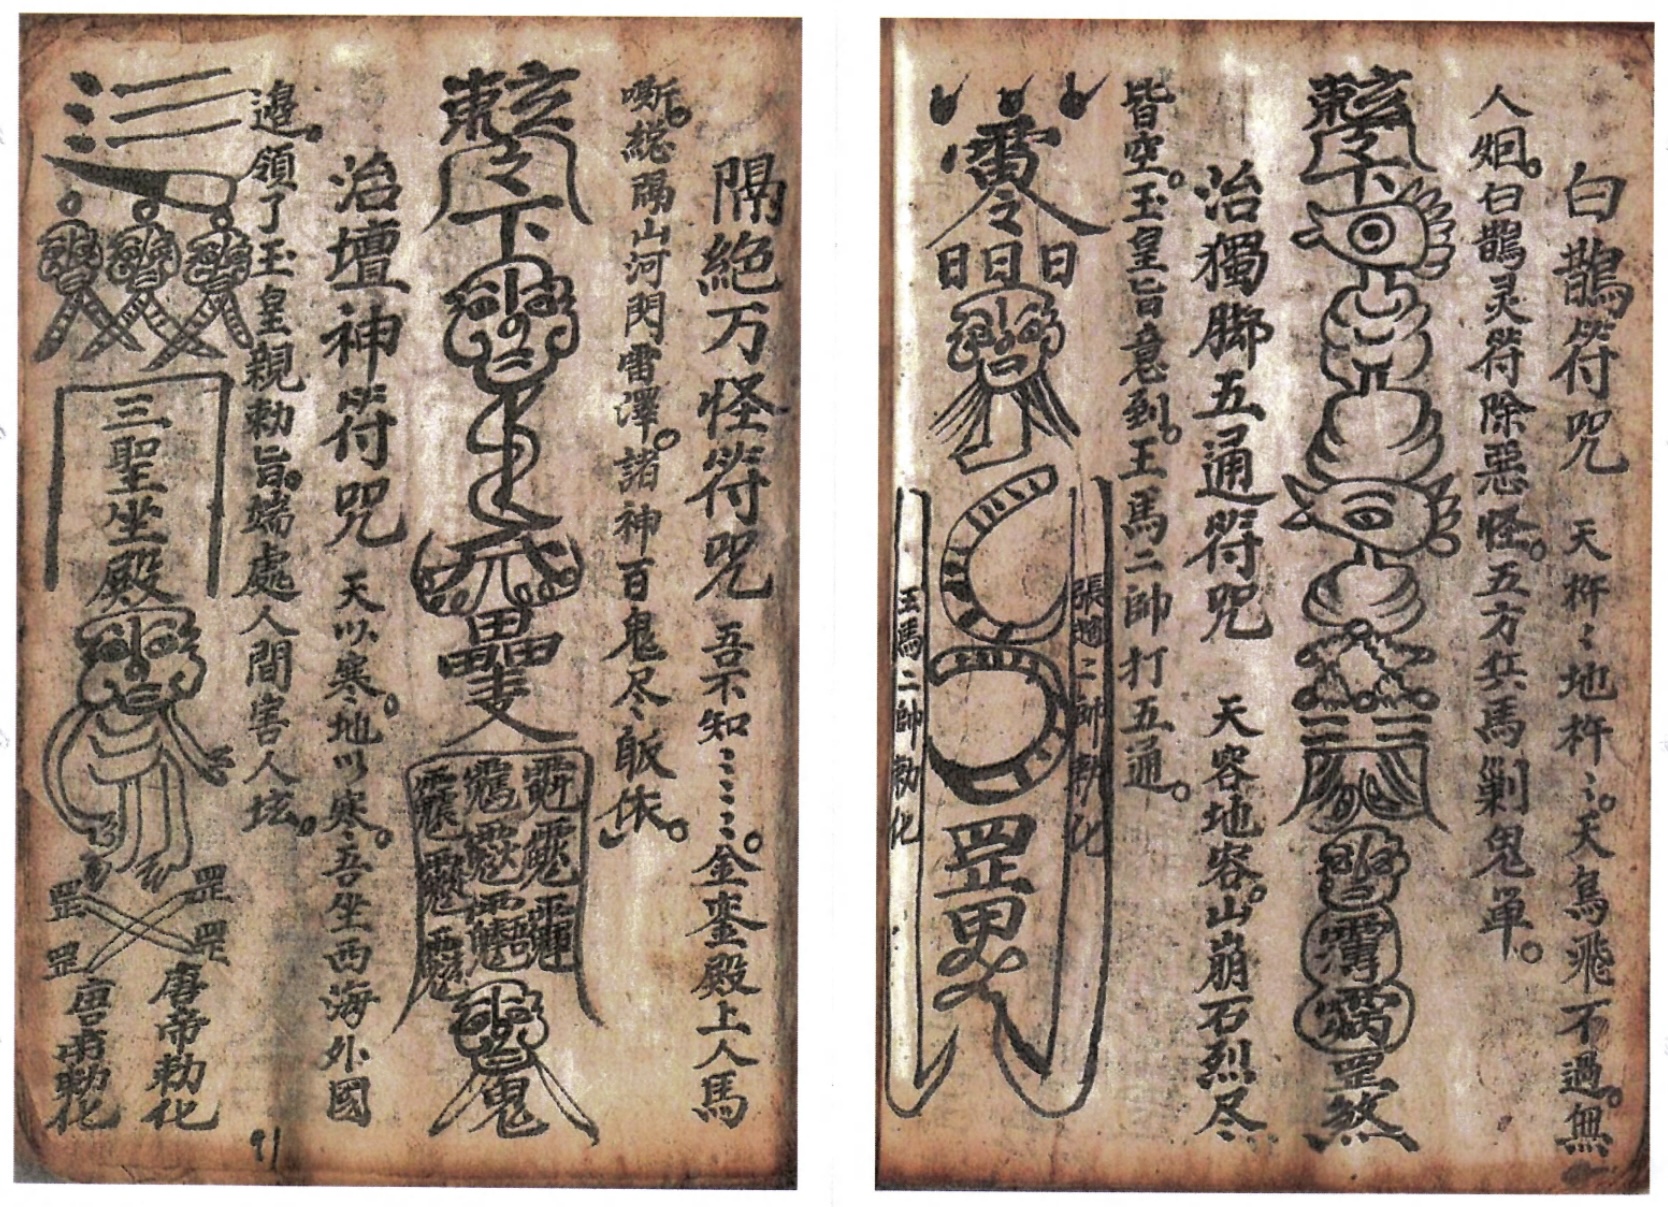 白鵲符咒 天杵〻地杵〻。天鳥飛不過。無
人𢌞。白鵲灵符除惡怪。五方兵馬剿鬼单。
治獨脚五通符咒 天容地容。山崩石烈尽
皆空。玉皇旨意到。王馬二帥打五通。
張趙二帥勅化
雷令
日日日
王馬二帥勅化
罡
隔絶万怪符咒 吾不知〻〻〻〻。金銮殿上人馬
嘶。総隔山河閃雷澤。諸神百鬼尽皈依。
下
鬼
治壇神符咒 天以寒。地以寒。吾坐西海外國
邉。領了玉皇親勅旨。端處人間害人坛。
三聖坐殿
罡 罡
罡 罡
唐帝勅化
唐甫勅化
91